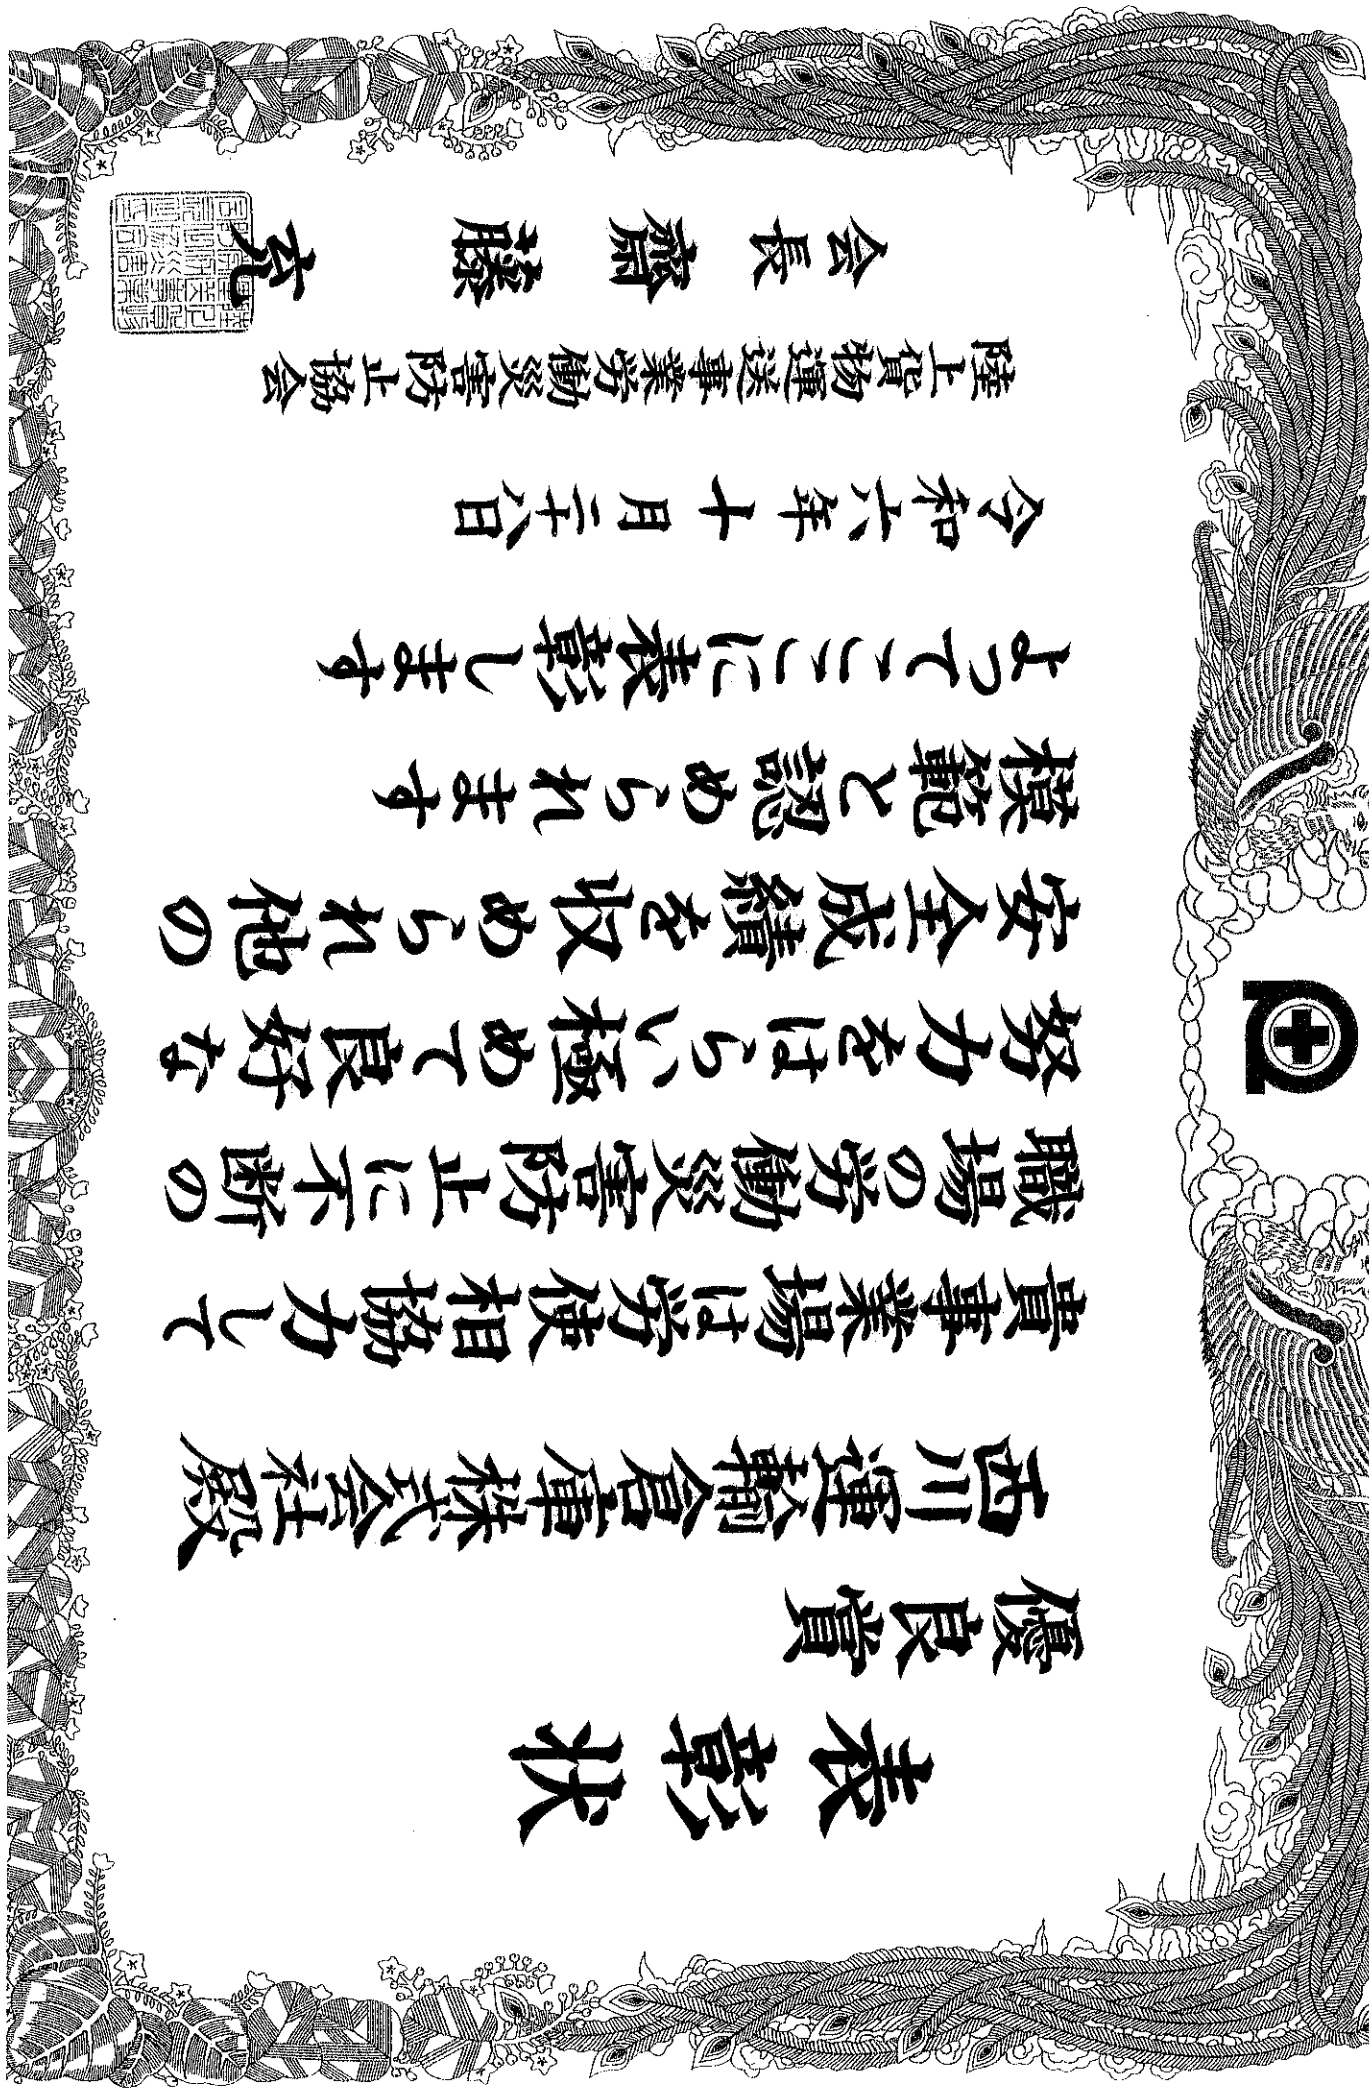 表彰状
優良賞
西川運輸倉庫株式会社殿
貴事業場は労使相協力して
職場の労働災害防止に不断の
努力をはらい極めて良好な
安全成績を収められ他の
模範と認められます
よってここに表彰します
令和六年十月二十八日
陸上貨物運送事業労働災害防止協会
会長 齋藤 充